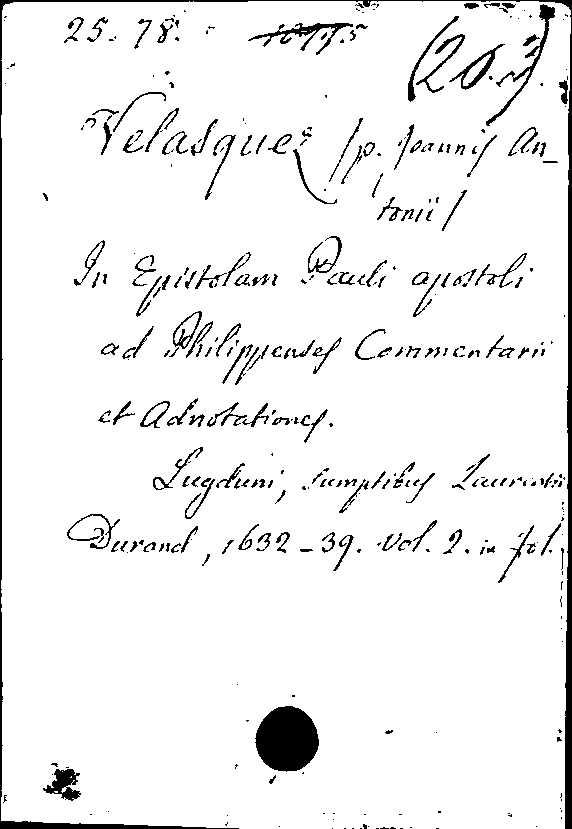 25. 78.
Velasquez /p. Joannis An-
tonii/
In Epistolam Pauli apostoli
ad Philippenses Commentarii
et Adnotationes.
Lugduni, sumptibus Laurentii
Durand, 1632-39. Vol. 2. in fol.